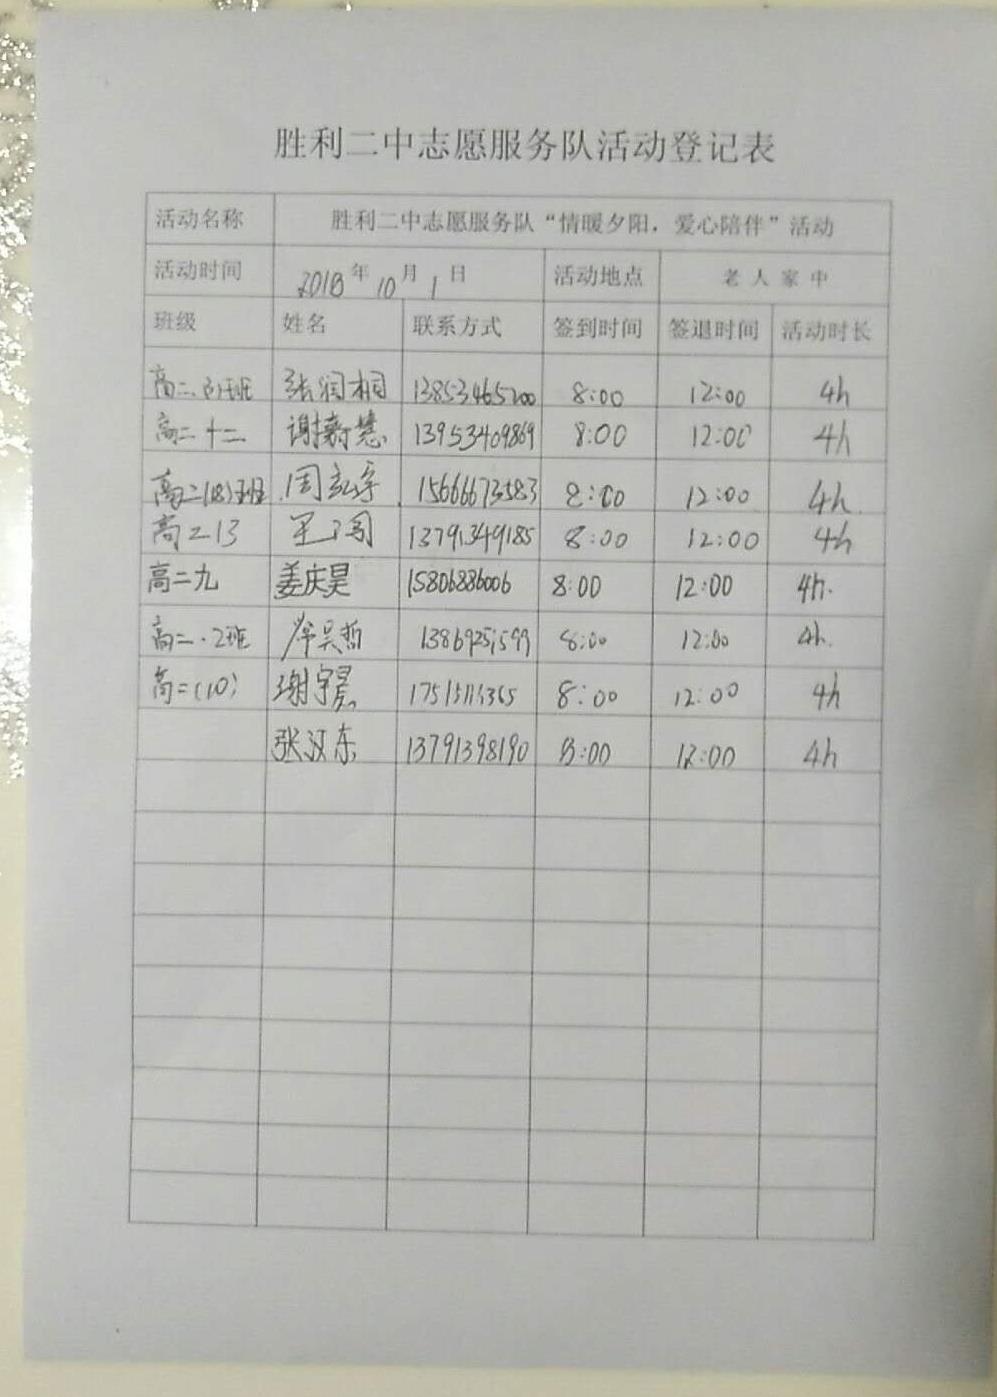 胜利二中志愿服务队活动登记表
活动名称 胜利二中志愿服务队“情暖夕阳，爱心陪伴”活动
活动时间 2018年10月1日 活动地点 老人家中
班级 姓名 联系方式 签到时间 签退时间 活动时长
高二 班 张润桐 13853465200 8:00 12:00 4h
高二十二 谢 慧 13953409869 8:00 12:00 4h
高二(18)班 周 15666673583 8:00 12:00 4h
高二13 王 13791349185 8:00 12:00 4h
高二九 姜庆昊 15806886006 8:00 12:00 4h.
高二.2班 昊哲 8:00 12:00 4h.
高二(10) 谢宇 8:00 12:00 4h
张汶东 13791398190 8:00 12:00 4h